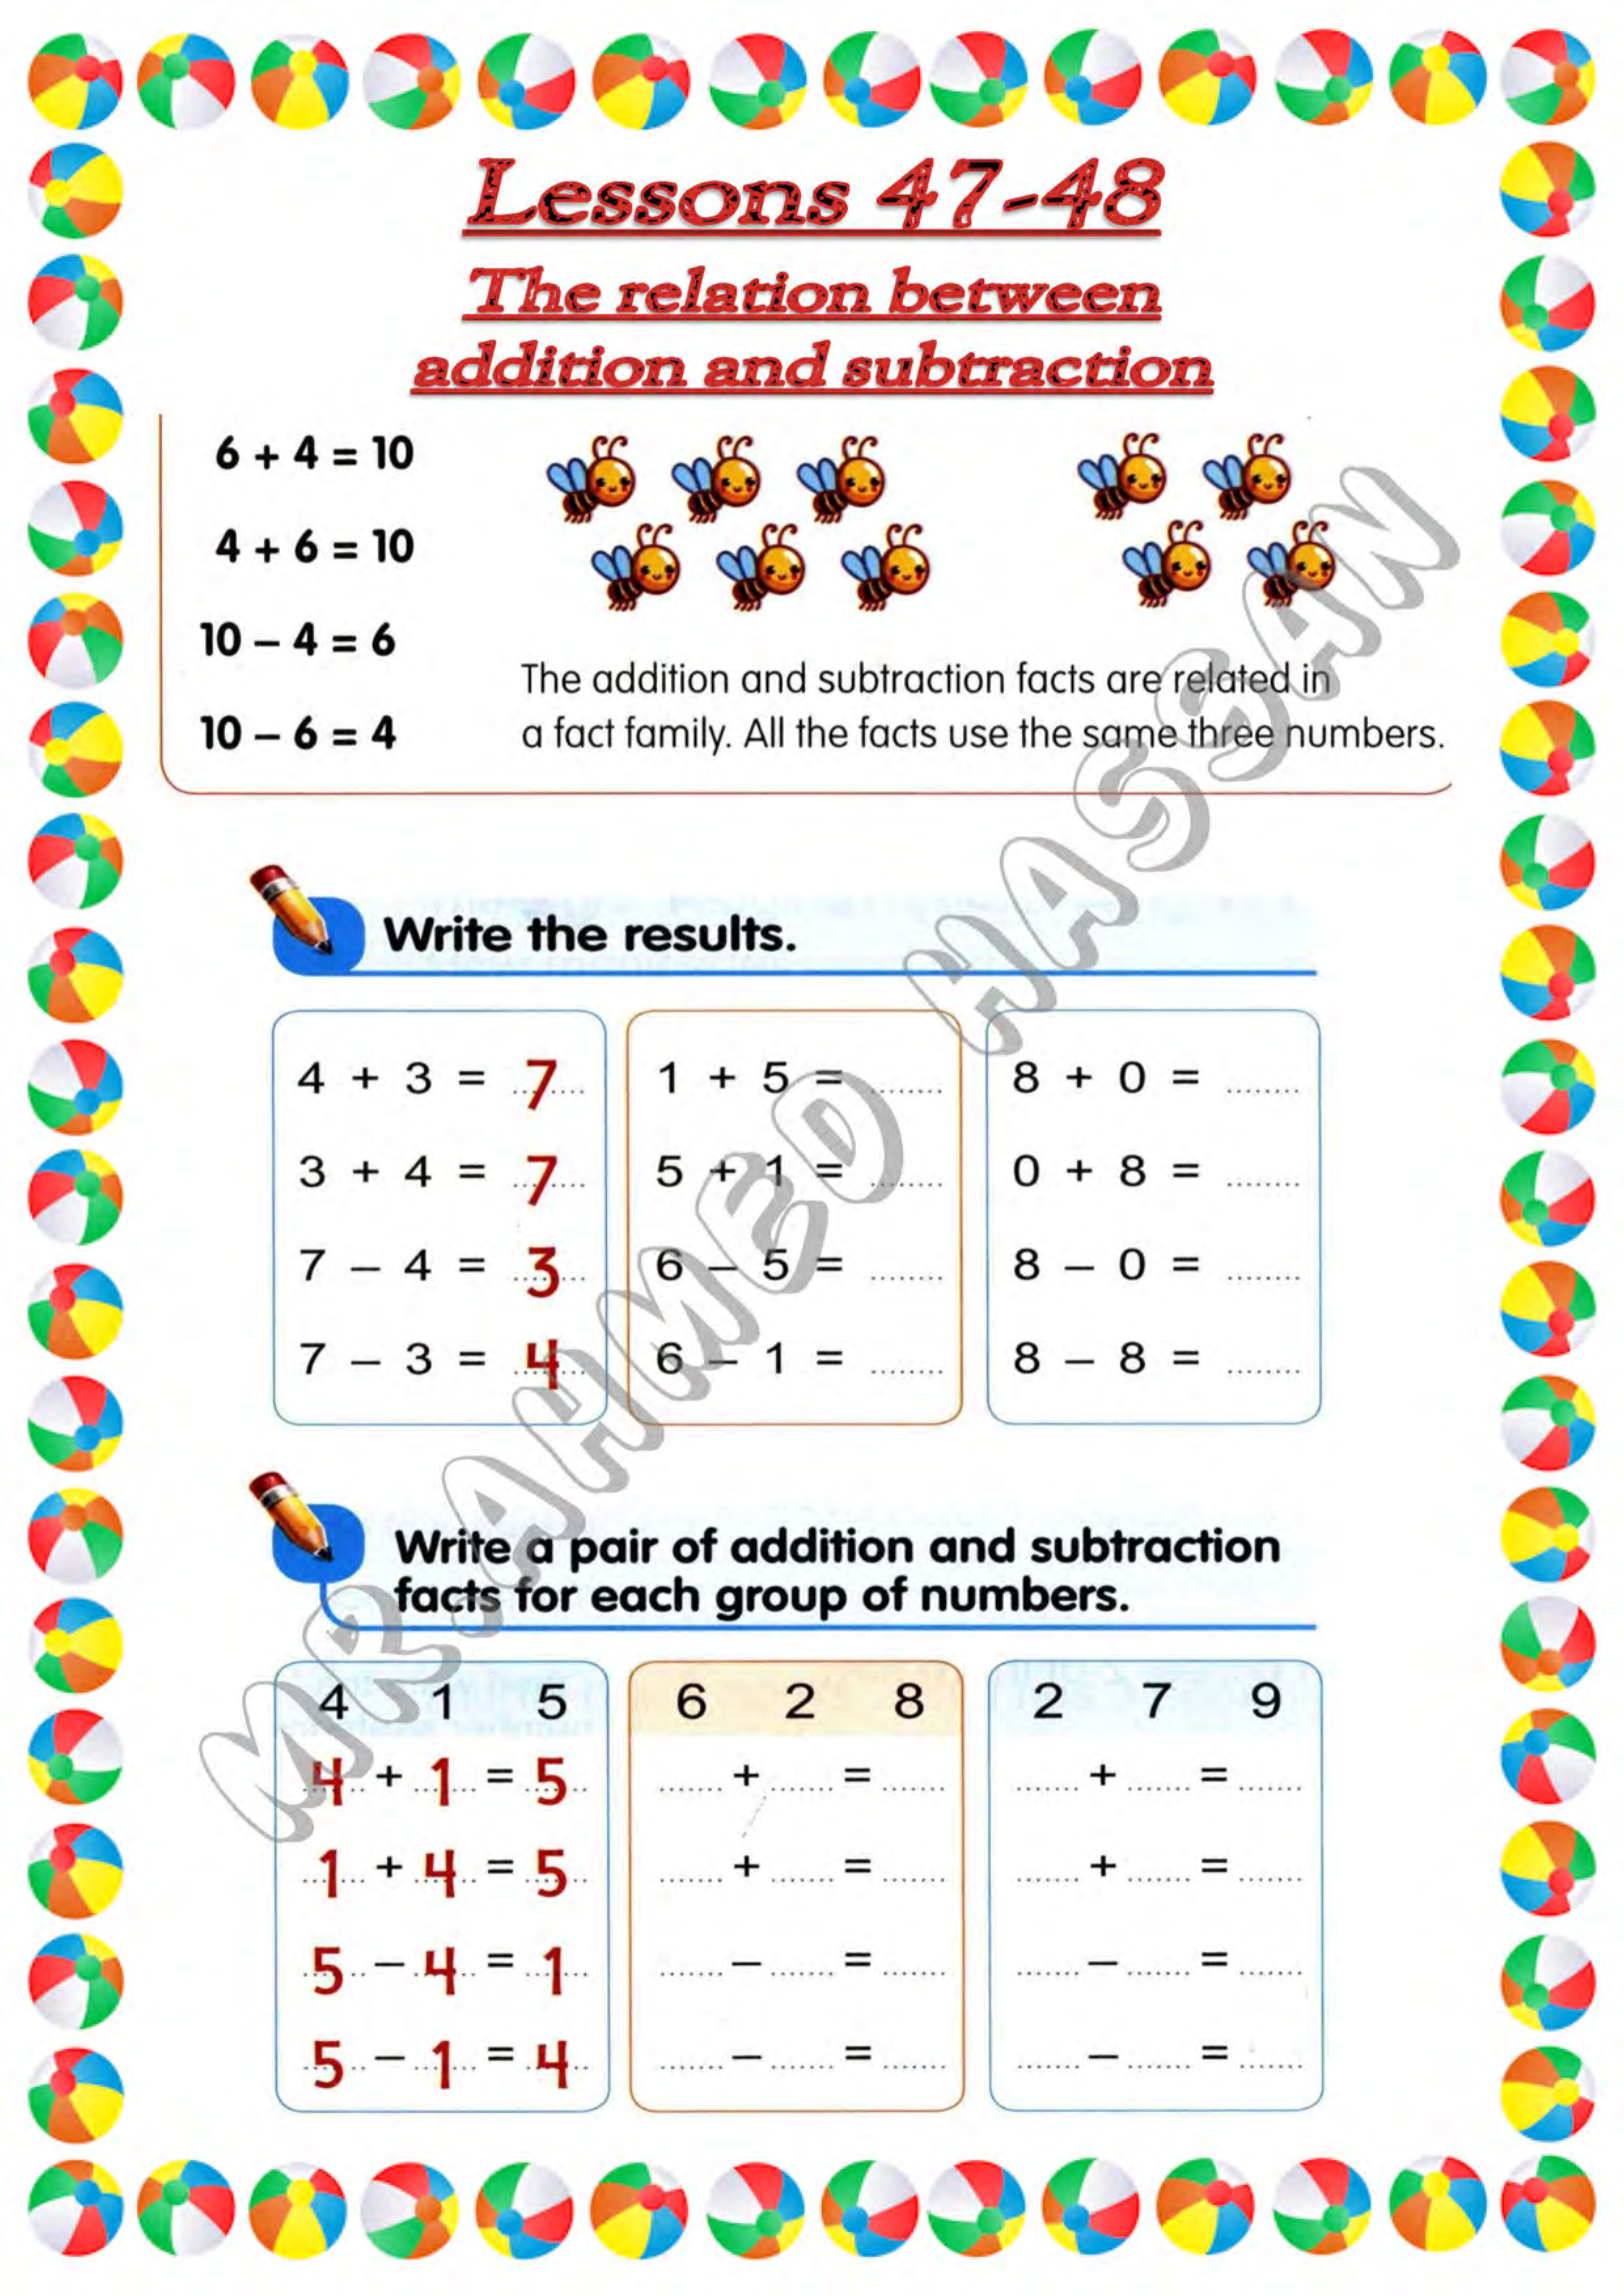 Lessons 47-48
The relation between
addition and subtraction
6 + 4 = 10
4 + 6 = 10
10 – 4 = 6
10 – 6 = 4
The addition and subtraction facts are related in
a fact family. All the facts use the same three numbers.
Write the results.
4 + 3 = 7
3 + 4 = 7
7 – 4 = 3
7 – 3 = 4
1 + 5 = ........
5 + 1 = ........
6 – 5 = ........
6 – 1 = ........
8 + 0 = ........
0 + 8 = ........
8 – 0 = ........
8 – 8 = ........
Write a pair of addition and subtraction
facts for each group of numbers.
4 1 5
4 + 1 = 5
1 + 4 = 5
5 – 4 = 1
5 – 1 = 4
6 2 8
....... + ....... = .......
....... + ....... = .......
....... – ....... = .......
....... – ....... = .......
2 7 9
....... + ....... = .......
....... + ....... = .......
....... – ....... = .......
....... – ....... = .......
MR.AHMED HASSAN